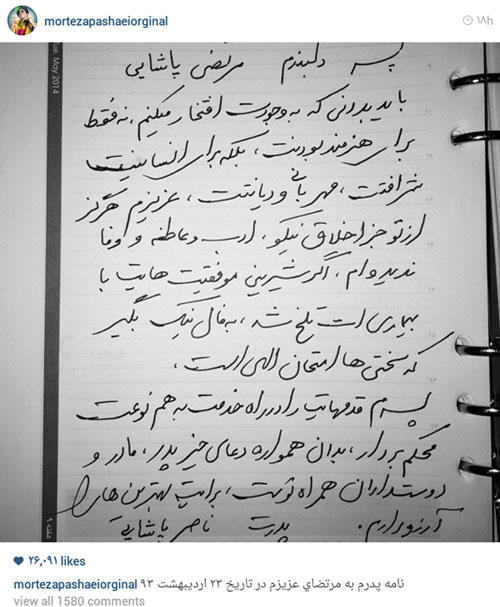 mortezapashaeiorginal
۱۸h
Tue, May 2014
پسر دلبندم مرتضی پاشایی
باید بدونی که به وجودت افتخار میکنم، نه فقط
برای هنرمند بودنت، بلکه برای انسانیت
شرافت، مهربانی و دیانتت، عزیزم هرگز
از تو جز اخلاق نیکو، ادب و عاطفه و وفا
ندیده ام، اگر شیرینی موفقیت هایت با
بیماری ات تلخ شد، به فال نیک بگیر
که سختی ها امتحان الهی است.
پسرم قدمهایت را در راه خدمت به هم نوعت
محکم بردار، بدان همواره دعای خیر پدر، مادر و
دوستداران همراه توست، برایت بهترین ها را
آرزو دارم. پدرت ناصر پاشایی
هفته ۹
۲۶,۰۹۱ likes
mortezapashaeiorginal نامه پدرم به مرتضاي عزيزم در تاريخ ۲۳ ارديبهشت ۹۳
view all 1580 comments